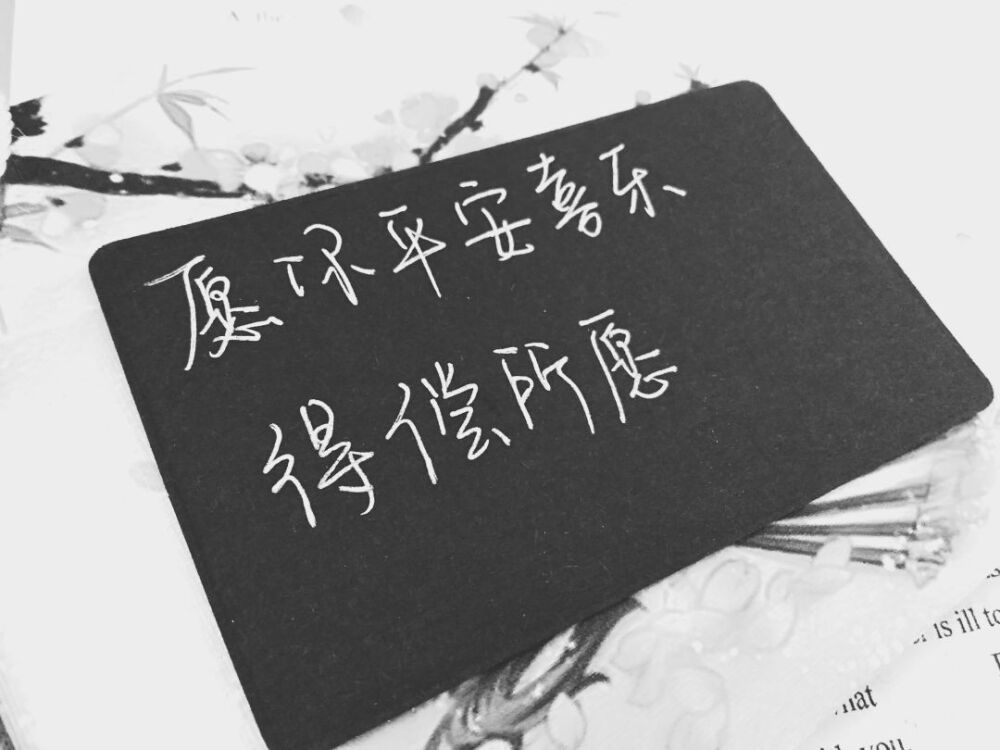 愿保平安喜乐
得偿所愿
is ill to
you